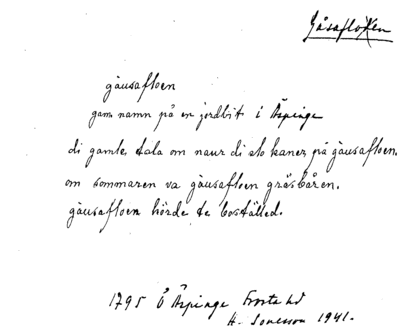 Gåsafloen
gåusafloen
gam. namn på en jordbit i Äspinge
di gamle tala om naur di slo kanez på gåusafloen.
om sommaren va gåusafloen gräsbåren.
gåusafloen hörde te boställed.
1795 Ö Äspinge Frosta hd
H. Sonesson 1941.